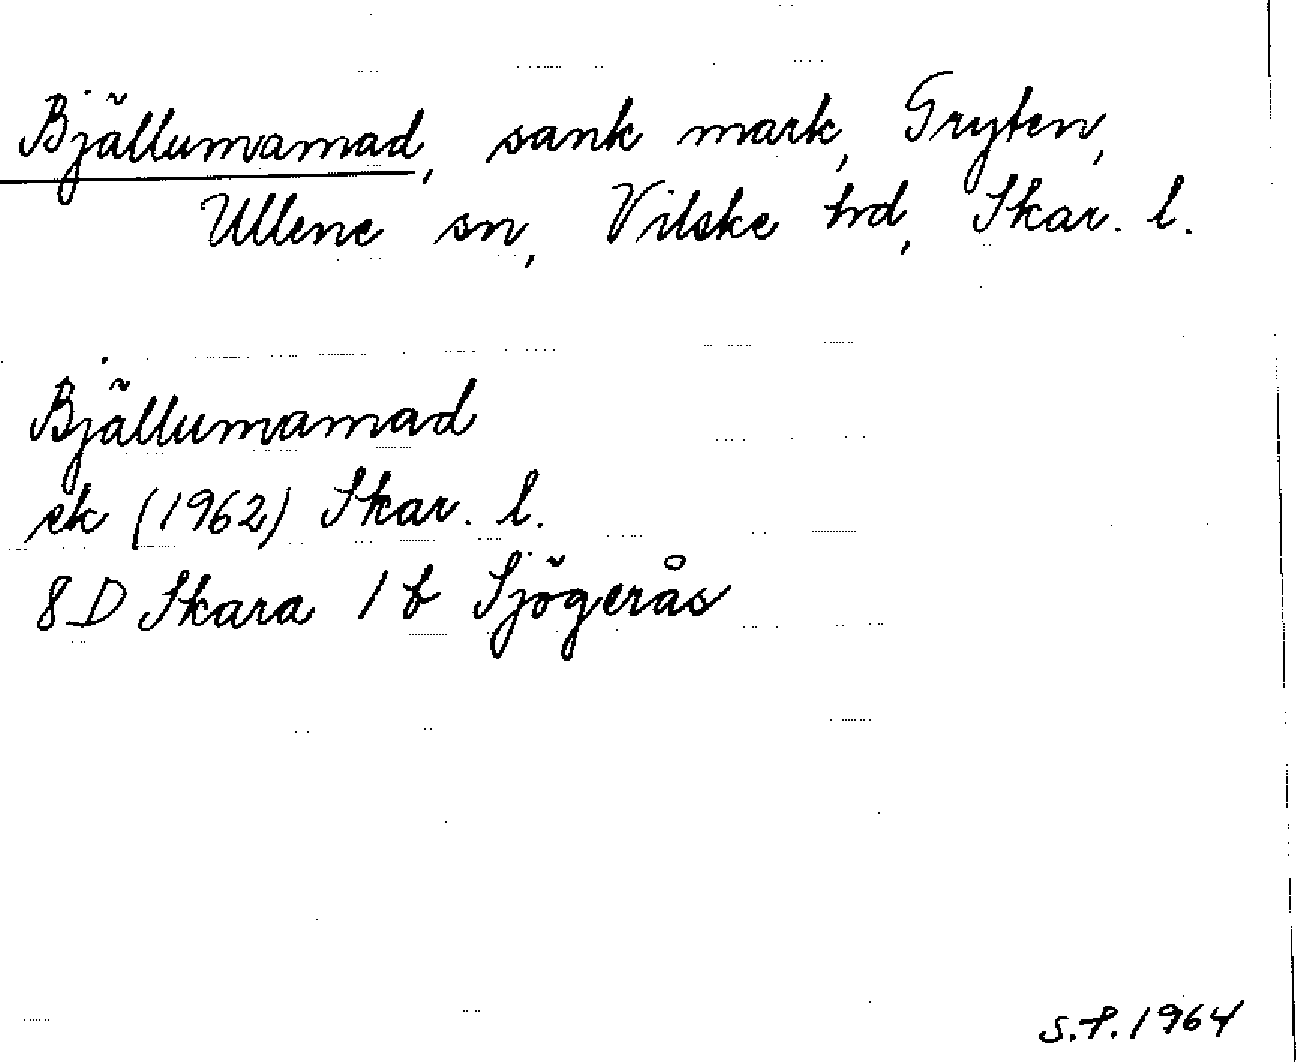 Bjällumamad, sank mark, Gryten,
Ullene sn, Vilske hd, Skar. l.
Bjällumamad
ek (1962) Skar. l.
8D Skara 1 b Sjögerås
S.P. 1964